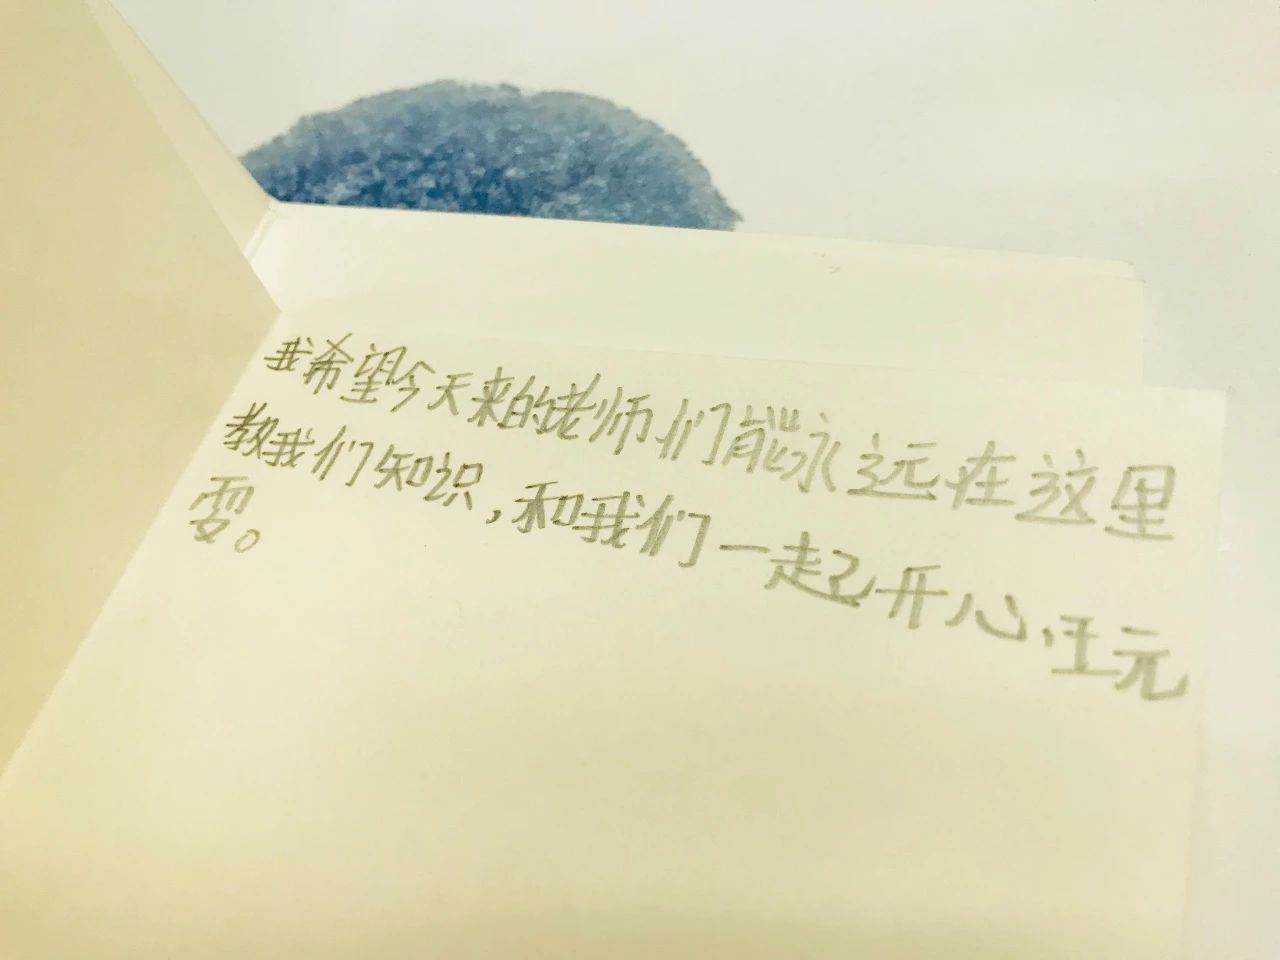 我希望今天来的老师们能永远在这里
教我们知识，和我们一起开心、玩
耍。